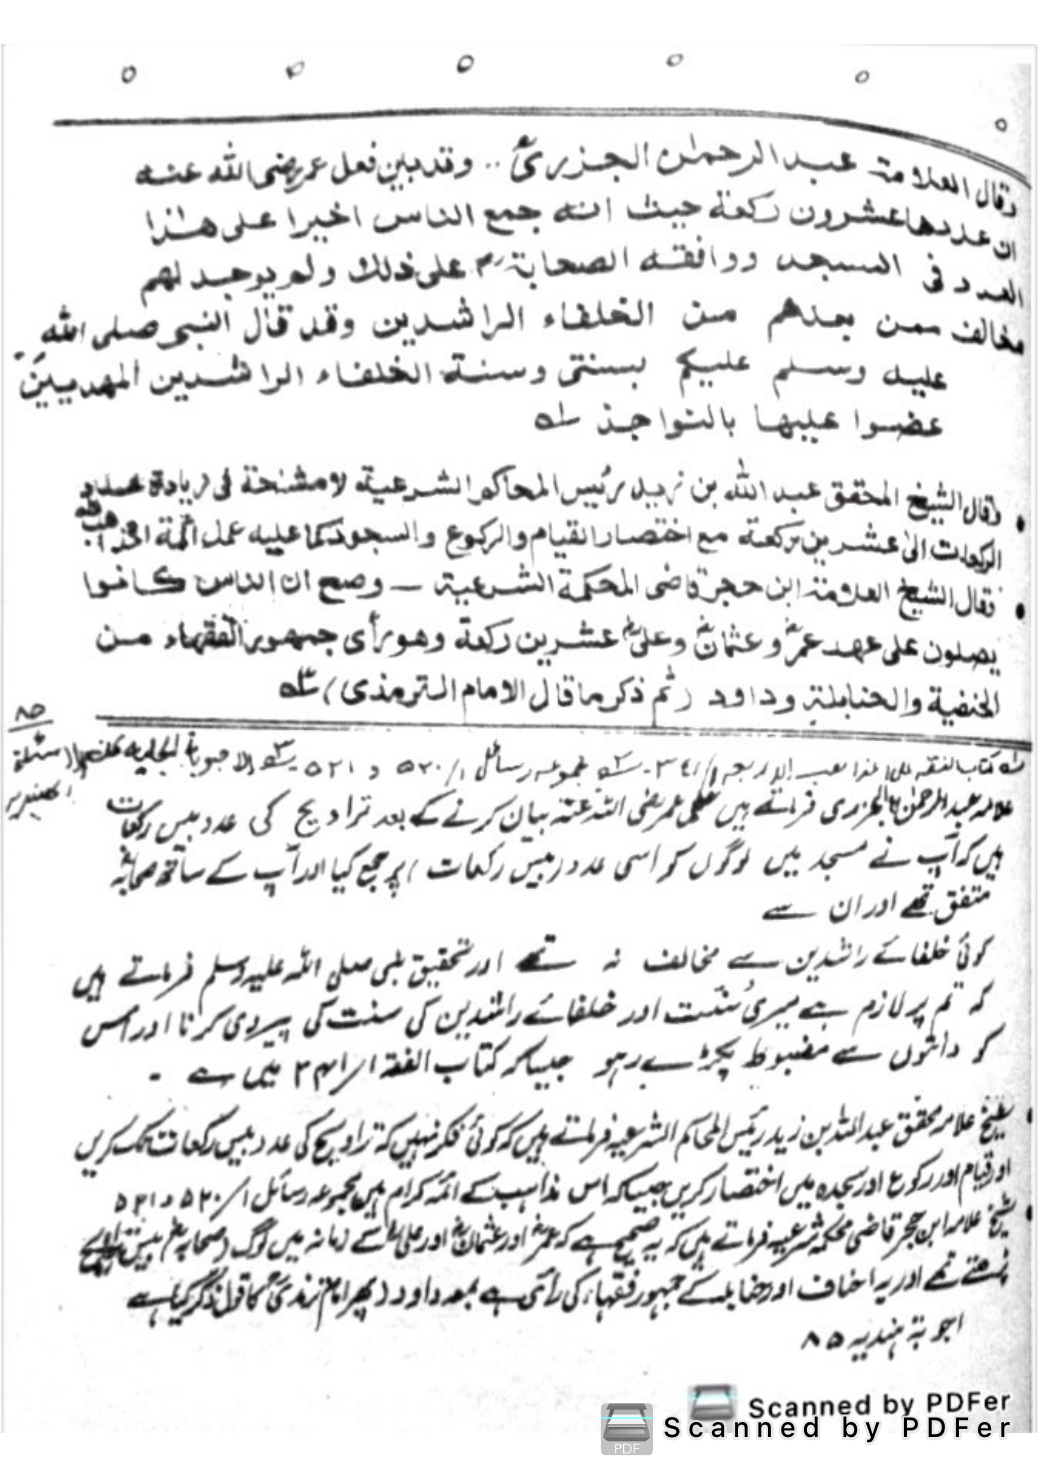 وقال العلامة عبد الرحمٰن الجزيرىؒ .. وقد بين فعل عمر رضى الله عنه
ان عددها عشرون ركعة حيث انه جمع الناس اخيرا على هٰذا
العدد فى المسجد ووافقه الصحابةؓ على ذلك ولم يوجد لهم
مخالف ممن بعدهم من الخلفاء الراشدين وقد قال النبى صلى الله
عليه وسلم عليكم بسنتى وسنة الخلفاء الراشدين المهديين
عضوا عليها بالنواجذ له
• وقال الشيخ المحقق عبد الله بن زيد رئيس المحاكم الشرعية لا مشنحة فى زيادة عدد
الركعات الىٰ عشرين ركعة مع اختصار القيام والركوع والسجود كما عليه عمل ائمة المذاهب
• فقال الشيخ العلامة ابن حجر قاضى المحكمة الشرعية ـ وصح ان الناس كانوا
يصلون على عهد عمرؓ و عثمانؓ وعلىؓ عشرين ركعة وهو رأى جمهور الفقهاء من
الحنفية والحنابلة وداود (ثم ذكر ما قال الامام الترمذى)
كتاب الفقه على المذاهب الاربعه ۱/۳۴۱ مجموعه رسائل ۱/ ۵۲۰ و ۵۲۱ الاجوبة
۸۵
علامہ عبدالرحمٰن الجزری فرماتے ہیں عمر رضی اللہ عنہ بیان کرنے کے بعد تراویح کی عدد بیس رکعات
ہیں کہ آپ نے مسجد میں لوگوں کو اسی عدد (بیس رکعات) پر جمع کیا اور آپ کے ساتھ صحابہؓ
متفق تھے اور ان سے
کوئی خلفائے راشدین سے مخالف نہ تھے اور تحقیق نبی صلی اللہ علیہ وسلم فرماتے ہیں
کہ تم پر لازم ہے میری سُنّت اور خلفائے راشدین کی سنت کی پیروی کرنا اور اس
کو دانتوں سے مضبوط پکڑے رہو جیسا کہ کتاب الفقہ ۱/۳۴۱ میں ہے ۔
• شیخ علامہ محقق عبداللہ بن زید رئیس المحاکم الشرعیہ فرماتے ہیں کہ کوئی فکر نہیں کہ تراویح کی عدد بیس رکعات تک کریں
اور قیام اور رکوع اور سجدہ میں اختصار کریں جیسا کہ اس مذاہب کے ائمہ کرام ہیں مجموعہ رسائل ۱/ ۵۲۰ و ۵۲۱
• شیخ علامہ ابن حجر قاضی محکمہ شرعیہ فرماتے ہیں کہ یہ صحیح ہے کہ عمرؓ اور عثمانؓ اور علیؓ کے زمانہ میں لوگ (صحابہؓ) بیس تراویح
پڑھتے تھے اور یہ احناف اور حنابلہ کے جمہور فقہاء کی رائی ہے بمعہ داود (پھر امام ترمذیؒ کا قول ذکر کیا) ہے
اجوبۃ ہندیہ ۸۵
Scanned by PDFer
Scanned by PDFer
PDF